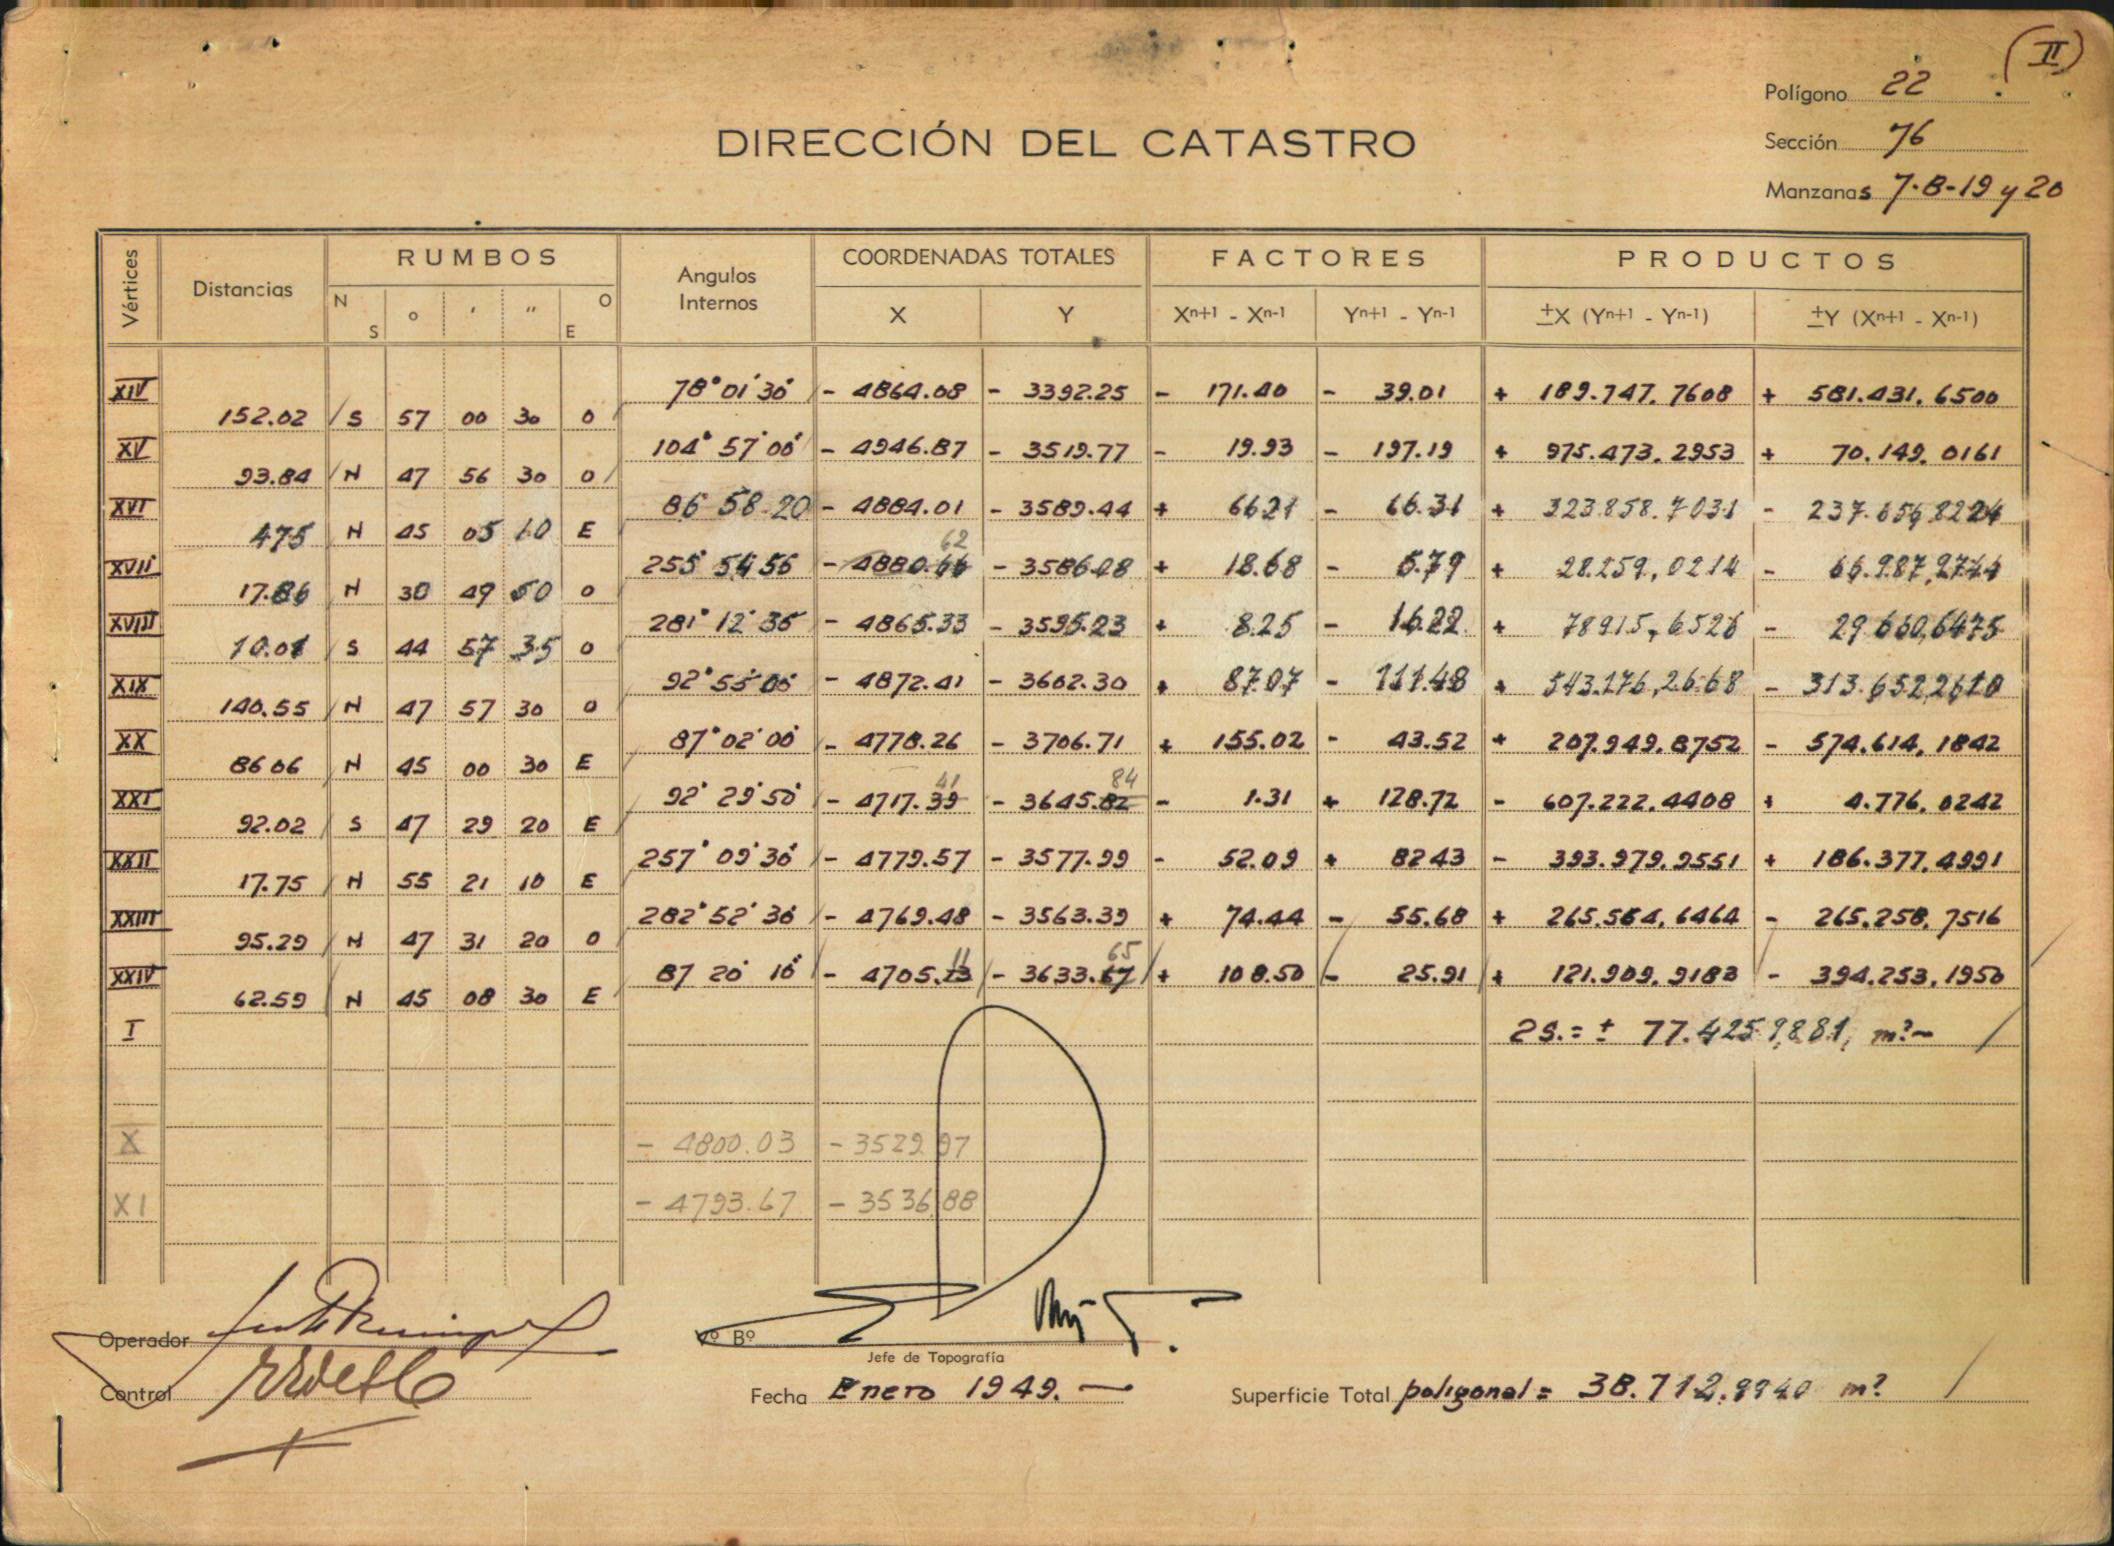 (II)
Polígono 22
DIRECCIÓN DEL CATASTRO
Sección 76
Manzanas 7-8-19 y 20
Vértices Distancias RUMBOS Angulos Internos COORDENADAS TOTALES FACTORES PRODUCTOS
N S o ' " O E X Y Xn+1 - Xn-1 Yn+1 - Yn-1 ±X (Yn+1 - Yn-1) ±Y (Xn+1 - Xn-1)
XIV 78° 01' 30" - 4864.08 - 3392.25 - 171.40 - 39.01 + 189.747.7608 + 581.431.6500
152.02 S 57 00 30 O
XV 104° 57' 00" - 4946.87 - 3519.77 - 19.93 - 197.19 + 975.473.2953 + 70.149.0161
93.84 N 47 56 30 O
XVI 86 58 20 - 4884.01 - 3589.44 + 66.21 - 66.31 + 323.858.7031 - 237.656.8224
4.75 N 45 05 10 E
62
XVII 255 54 56 - 4880.66 - 3586.08 + 18.68 - 5.79 + 28.259,0214 - 66.987,9744
17.86 N 30 49 50 O
XVIII 281° 12' 35" - 4865.33 - 3595.23 + 8.25 - 16.22 + 78915,6526 - 29.660,6475
10.01 S 44 57 35 O
XIX 92° 55' 05" - 4872.41 - 3602.30 + 87.07 - 111.48 + 543.176,2668 - 313.652,2610
140.55 N 47 57 30 O
XX 87° 02' 00" - 4778.26 - 3706.71 + 155.02 - 43.52 + 207.949.8752 - 574.614.1842
86.06 N 45 00 30 E
41 84
XXI 92° 29' 50" - 4717.39 - 3645.82 - 1.31 + 128.72 - 607.222.4408 + 4.776.0242
92.02 S 47 29 20 E
XXII 257° 09' 30" - 4779.57 - 3577.99 - 52.09 + 82.43 - 393.979.9551 + 186.377.4991
17.75 N 55 21 10 E
XXIII 282° 52' 30" - 4769.48 - 3563.39 + 74.44 - 55.68 + 265.564.6464 - 265.258.7516
95.29 N 47 31 20 O
11 65
XXIV 87 20' 10" - 4705.13 - 3633.67 + 108.50 - 25.91 + 121.909.9183 - 394.253.1950
62.59 N 45 08 30 E
I 2S. = ± 77.425.9,881, m².-
X - 4800.03 - 3529.97
XI - 4793.67 - 3536.88
Operador
Vº Bº
Jefe de Topografía
Control
Fecha Enero 1949.-
Superficie Total poligonal = 38.712.9940 m²